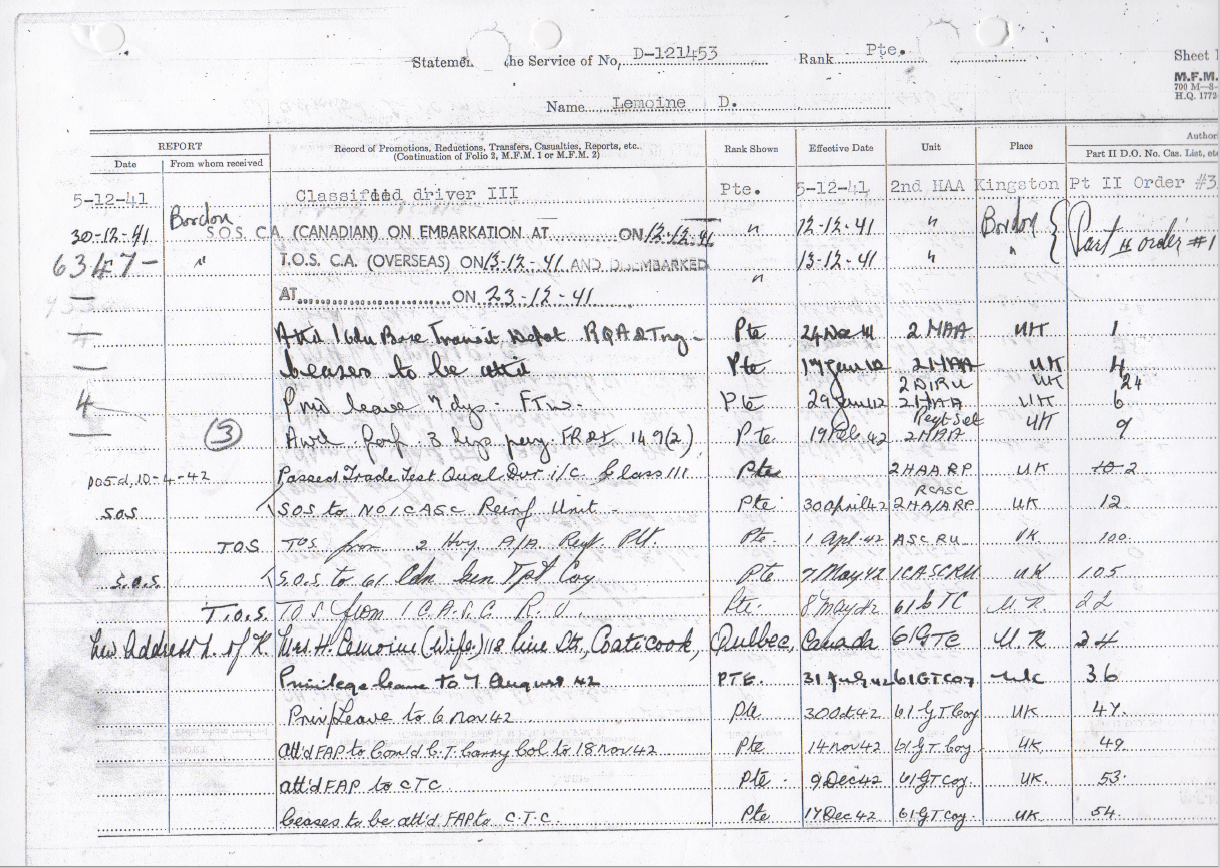 Statemen the Service of No. D-121453 Rank Pte. Sheet 1
M.F.M.
700 M—8-
H.Q. 1772
Name Lemoine D.
REPORT Record of Promotions, Reductions, Transfers, Casualties, Reports, etc. Rank Shown Effective Date Unit Place Author
Date From whom received (Continuation of Folio 2, M.F.M. 1 or M.F.M. 2) Part II D.O. No. Cas. List, etc
5-12-41 Classified driver III Pte. 5-12-41 2nd HAA Kingston Pt II Order #3
30-12-41 Bordon S.O.S. C.A. (CANADIAN) ON EMBARKATION AT ON 12-12-41 " 12-12-41 " Bordon Part II order #1
6347- " T.O.S. C.A. (OVERSEAS) ON 13-12-41 AND DISEMBARKED " 13-12-41 " "
AT ON 23-12-41
Att'd 1 Cdn Base Transit Depot RQA & Tng - Pte 24 Dec 41 2 HAA UK 1
Ceases to be att'd Pte 17 Jan 42 2 HAA UK 4
2 DIRU UK 24
4 Priv leave 7 dys. FTW. Pte 29 Jan 42 2 HAA UK 6
3 Awd forf. 3 dys pay. 149(2) Pte. 19 Feb 42 2HAA UK 9
10-4-42 Passed Trade Test Qual Dvr i/c Class III Pte 2HAA RP UK 10-2
RCASC
SOS S.O.S to NO 1 CASC Reinf Unit - Pte 30 April 42 2HA/ARP UK 12
TOS TOS from 2 Hvy A/A Regt Pte. 1 Apr. 42 ASC RU UK 100
S.O.S. S.O.S to 61 Cdn Gen Tpt Coy Pte 7 May 42 1CASCRU UK 105
T.O.S. T.O.S from 1 C.A.S.C. R.U. Pte. 8 May 42 61 G TC U.K. 22
New Address N. of K. Mrs H. Lemoine (Wife) 118 Pine St., Coaticook, Quebec, Canada 61 GTC U.K 24
Privilege leave to 7 August 42 PTE. 31 July 42 61 GT Coy UK 36
Priv/Leave to 6 Nov 42 Pte 30 Oct 42 61 GT Coy UK 47.
att'd FAP to Cond C.T. Carry Col to 18 Nov 42 Pte 14 Nov 42 61 GT Coy. UK 49.
att'd FAP to CTC Pte. 9 Dec 42 61 GT Coy. UK 53.
Ceases to be att'd FAP to C.T.C. Pte 17 Dec 42 61 GT Coy. UK 54.